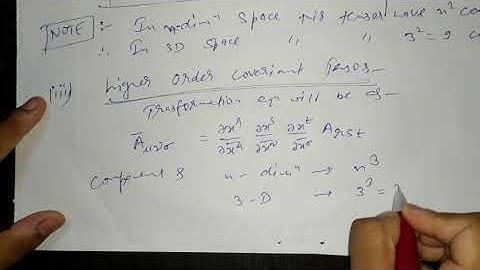 NOTE :- In n-dimⁿ Space this tensor have n² com
:- In 3D Space " " 3² = 9 c
(iii) Higher Order Covariant Tensor-
Transformation eqⁿ will be as-
Ā_μνσ = ∂xʳ/∂x̄^μ ∂xˢ/∂x̄^ν ∂xᵗ/∂x̄^σ A_rst
Components n-dimⁿ → n³
3-D → 3³ =